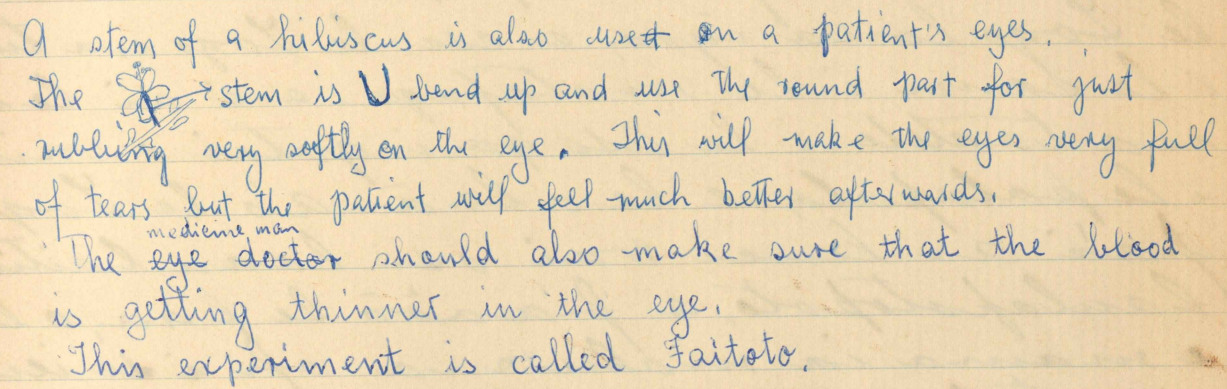 A stem of a hibiscus is also used on a patient's eyes.
The stem is U bend up and use the round part for just
rubbing very softly on the eye. This will make the eyes very full
of tears but the patient will fell much better afterwards.
medicine man
The eye doctor should also make sure that the blood
is getting thinner in the eye.
This experiment is called Faitoto.